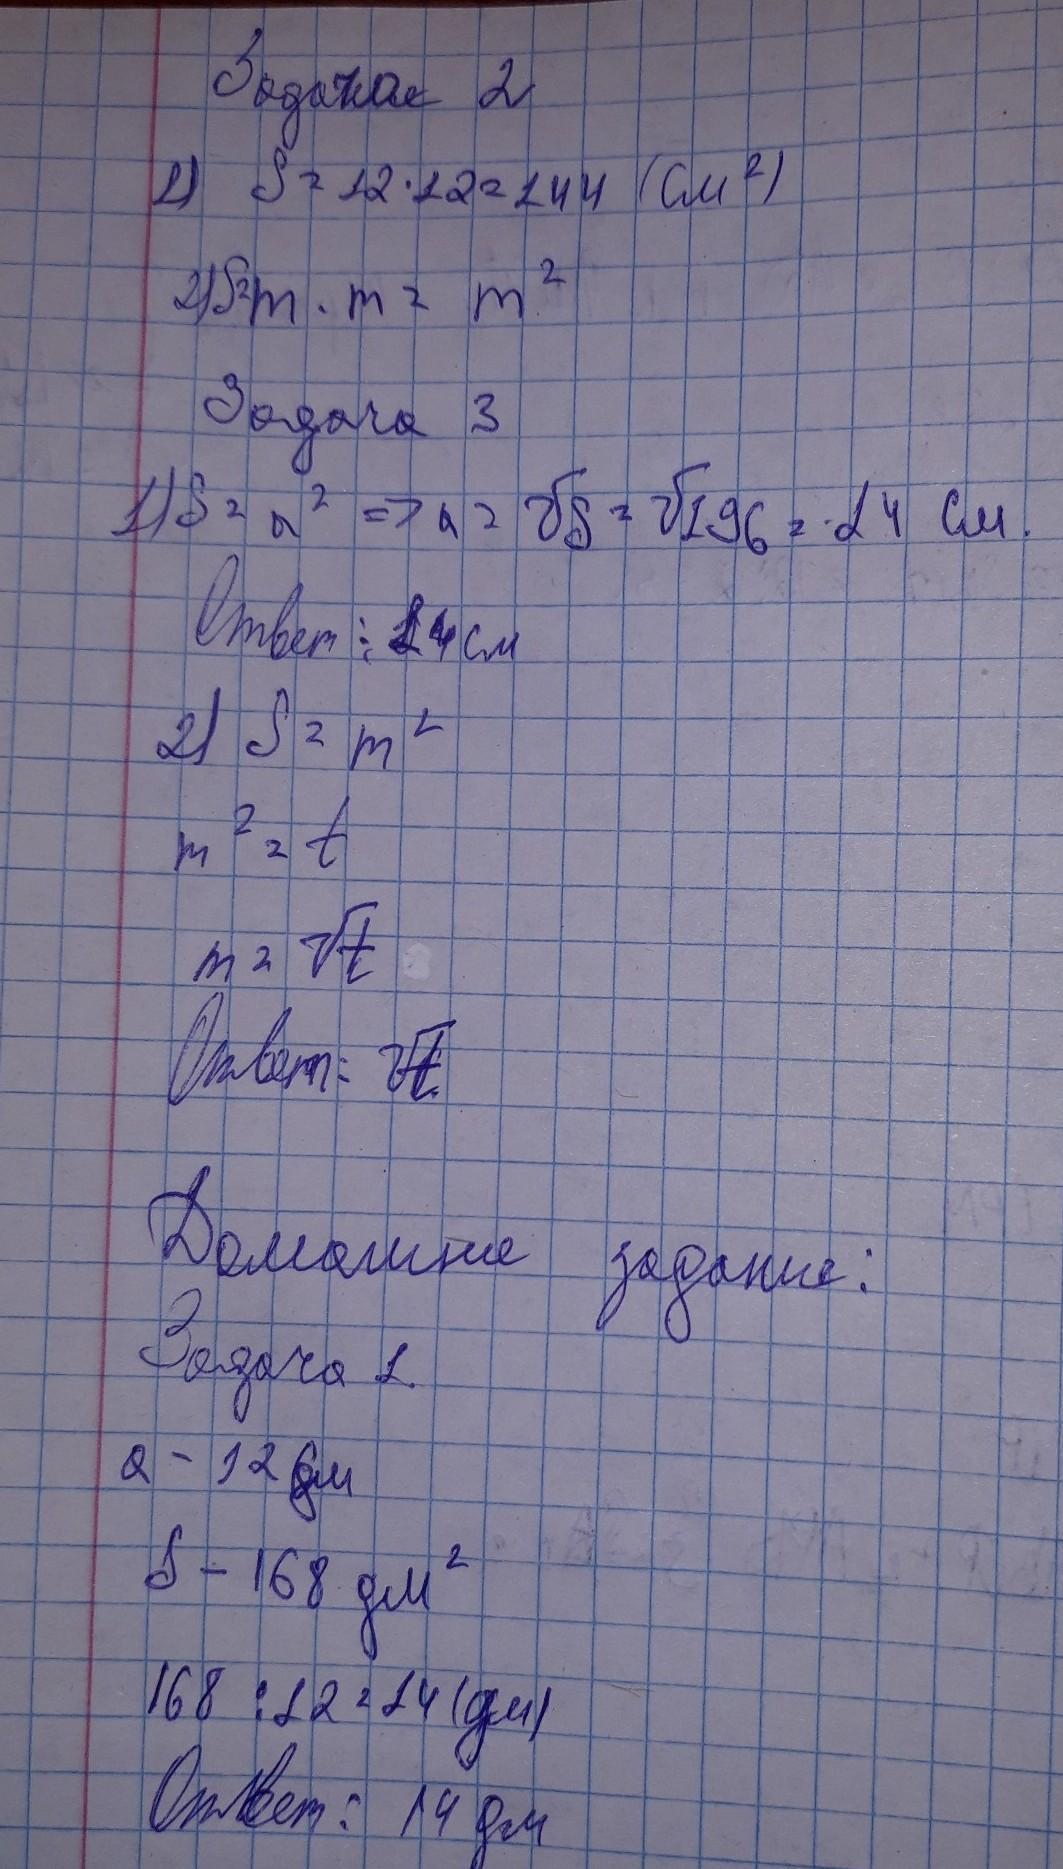 Задача 2
1) S = 12 · 12 = 144 (см²)
2) S = m · m = m²
Задача 3
1) S = a² => a = √S = √196 = 14 см.
Ответ: 14 см
2) S = m²
m² = t
m = √t
Ответ: √t
Домашнее задание:
Задача 1.
a - 12 дм
S - 168 дм²
168 : 12 = 14 (дм)
Ответ: 14 дм